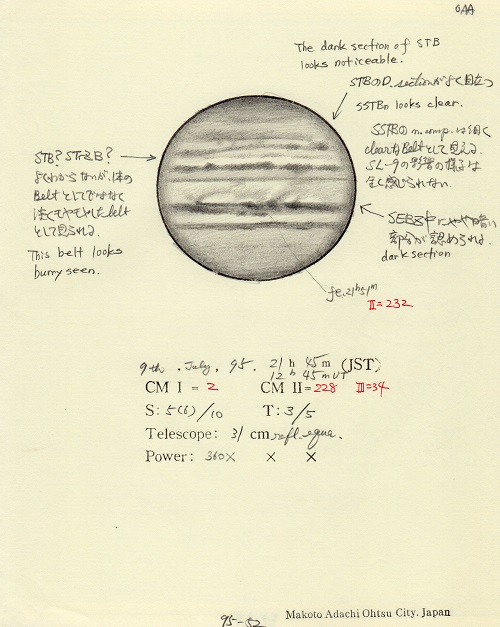 OAA
The dark section of STB
looks noticeable.
STBのD. sectionがよく目立つ
SSTBn looks clear.
SSTBの n. comp. は細く
clearなBeltとして見える.
SL-9の影響の様子は
全く感じられない.
STB? STrZB?
よくわからないが、1本の
Beltとしてではなく
淡くモヤモヤしたbelt
として見られる.
This belt looks
burry seen.
SEBZ中にやや暗い
部分が認められる.
dark section
fe. 21h51m
II=232
9th . July , 95. 21 h 45 m (JST)
12 h 45 m UT
CM I = 2 CM II = 228 III=34
S: 5(6)/10 T: 3/5
Telescope: 31 cm refl. equa.
Power: 360× × ×
95-52
Makoto Adachi Ohtsu City. Japan